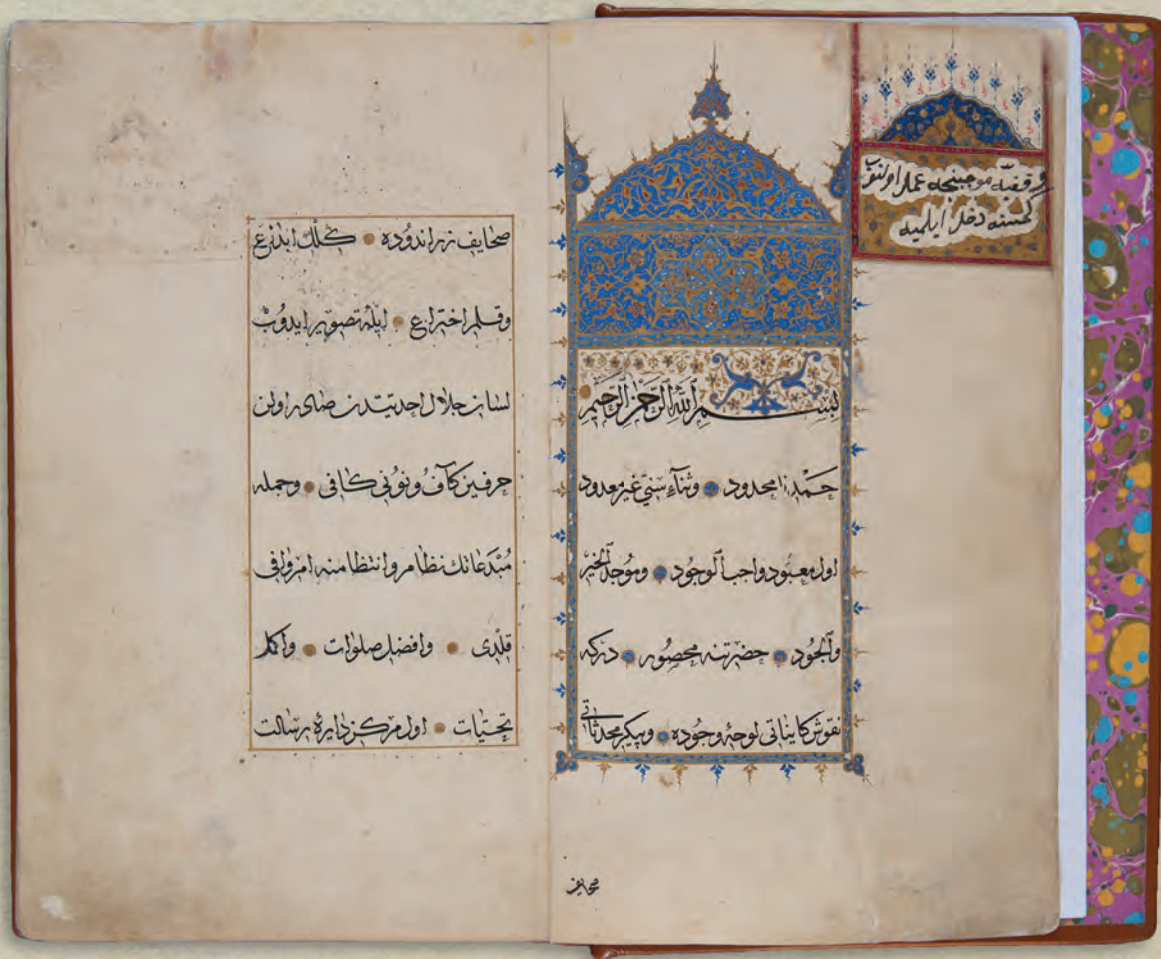 وقفيه موجبنجه عمل اولنوب
كمسنه دخل ايلميه
بسم الله الرحمن الرحيم
حمد نا محدود وثناء سني غير معدود
اول معبود واجب الوجود وموجد الخير
والجود حضرتنه محصور دركه
نقوش كايناتى لوحهٔ وجوده وپيكر محدثاتى
صحايف
صحايف زراندوده كلك ابداع
وقلم اختراع ايله تصوير ايدوب
لسان جلال احديتدن صادر اولن
حرفين كاف ونونى كافى وجمله
مبدعاتك نظام وانتظامنه امر وافى
قلدى وافضل صلوات واكمل
تحيات اول مركز دايرهٔ رسالت